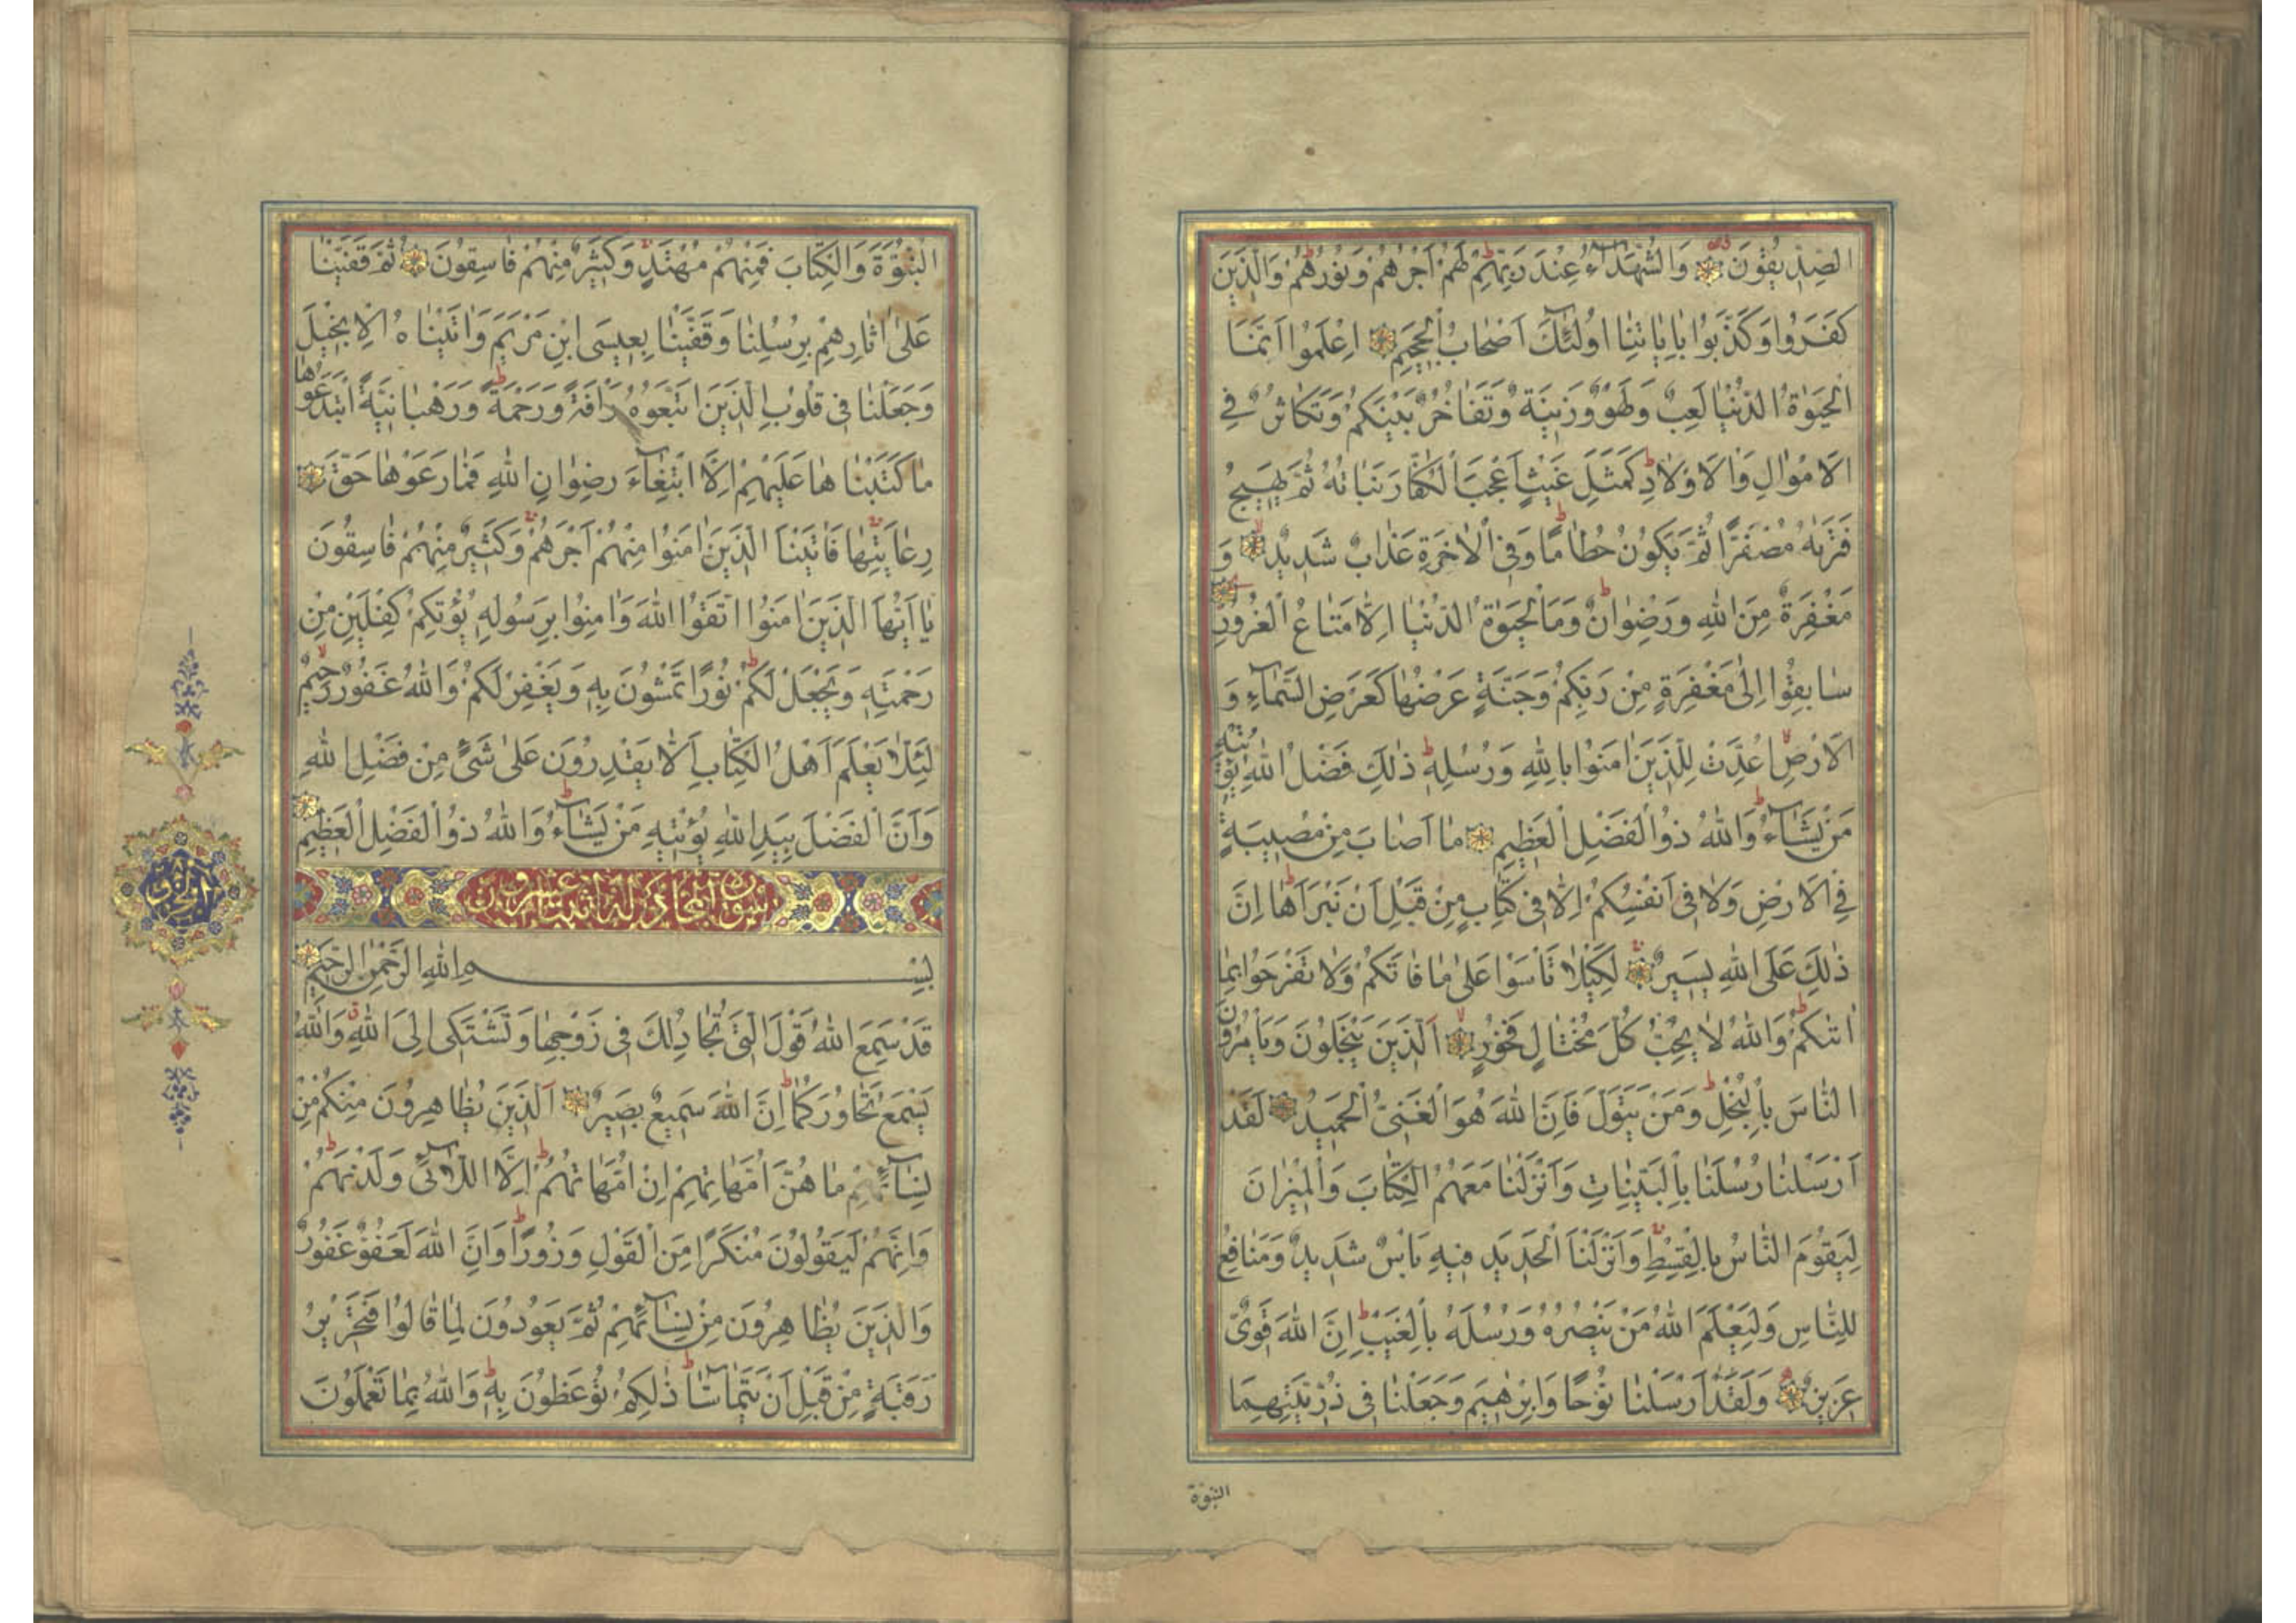 الصِّدِّيقُونَ وَالشُّهَدَاءُ عِنْدَ رَبِّهِمْ لَهُمْ اَجْرُهُمْ وَنُورُهُمْ وَالَّذِينَ
كَفَرُوا وَكَذَّبُوا بِاٰيَاتِنَا اُولٰئِكَ اَصْحَابُ الْجَحِيمِ اِعْلَمُوا اَنَّمَا
الْحَيٰوةُ الدُّنْيَا لَعِبٌ وَلَهْوٌ وَزِينَةٌ وَتَفَاخُرٌ بَيْنَكُمْ وَتَكَاثُرٌ فِى
الْاَمْوَالِ وَالْاَوْلَادِ كَمَثَلِ غَيْثٍ اَعْجَبَ الْكُفَّارَ نَبَاتُهُ ثُمَّ يَهِيجُ
فَتَرٰيهُ مُصْفَرًّا ثُمَّ يَكُونُ حُطَامًا وَفِى الْاٰخِرَةِ عَذَابٌ شَدِيدٌ وَ
مَغْفِرَةٌ مِنَ اللّٰهِ وَرِضْوَانٌ وَمَا الْحَيٰوةُ الدُّنْيَا اِلَّا مَتَاعُ الْغُرُورِ
سَابِقُوا اِلٰى مَغْفِرَةٍ مِنْ رَبِّكُمْ وَجَنَّةٍ عَرْضُهَا كَعَرْضِ السَّمَآءِ وَ
الْاَرْضِ اُعِدَّتْ لِلَّذِينَ اٰمَنُوا بِاللّٰهِ وَرُسُلِهِ ذٰلِكَ فَضْلُ اللّٰهِ يُؤْتِيهِ
مَنْ يَشَآءُ وَاللّٰهُ ذُو الْفَضْلِ الْعَظِيمِ مَا اَصَابَ مِنْ مُصِيبَةٍ
فِى الْاَرْضِ وَلَا فِى اَنْفُسِكُمْ اِلَّا فِى كِتَابٍ مِنْ قَبْلِ اَنْ نَبْرَاَهَا اِنَّ
ذٰلِكَ عَلَى اللّٰهِ يَسِيرٌ لِكَيْلَا تَاْسَوْا عَلٰى مَا فَاتَكُمْ وَلَا تَفْرَحُوا بِمَا
اٰتٰيكُمْ وَاللّٰهُ لَا يُحِبُّ كُلَّ مُخْتَالٍ فَخُورٍ اَلَّذِينَ يَبْخَلُونَ وَيَاْمُرُونَ
النَّاسَ بِالْبُخْلِ وَمَنْ يَتَوَلَّ فَاِنَّ اللّٰهَ هُوَ الْغَنِىُّ الْحَمِيدُ لَقَدْ
اَرْسَلْنَا رُسُلَنَا بِالْبَيِّنَاتِ وَاَنْزَلْنَا مَعَهُمُ الْكِتَابَ وَالْمِيزَانَ
لِيَقُومَ النَّاسُ بِالْقِسْطِ وَاَنْزَلْنَا الْحَدِيدَ فِيهِ بَاْسٌ شَدِيدٌ وَمَنَافِعُ
لِلنَّاسِ وَلِيَعْلَمَ اللّٰهُ مَنْ يَنْصُرُهُ وَرُسُلَهُ بِالْغَيْبِ اِنَّ اللّٰهَ قَوِىٌّ
عَزِيزٌ وَلَقَدْ اَرْسَلْنَا نُوحًا وَاِبْرٰهِيمَ وَجَعَلْنَا فِى ذُرِّيَّتِهِمَا
النبوة
النُّبُوَّةَ وَالْكِتَابَ فَمِنْهُمْ مُهْتَدٍ وَكَثِيرٌ مِنْهُمْ فَاسِقُونَ ثُمَّ قَفَّيْنَا
عَلٰى اٰثَارِهِمْ بِرُسُلِنَا وَقَفَّيْنَا بِعِيسَى ابْنِ مَرْيَمَ وَاٰتَيْنَاهُ الْاِنْجِيلَ
وَجَعَلْنَا فِى قُلُوبِ الَّذِينَ اتَّبَعُوهُ رَاْفَةً وَرَحْمَةً وَرَهْبَانِيَّةً ابْتَدَعُوهَا
مَا كَتَبْنَاهَا عَلَيْهِمْ اِلَّا ابْتِغَآءَ رِضْوَانِ اللّٰهِ فَمَا رَعَوْهَا حَقَّ
رِعَايَتِهَا فَاٰتَيْنَا الَّذِينَ اٰمَنُوا مِنْهُمْ اَجْرَهُمْ وَكَثِيرٌ مِنْهُمْ فَاسِقُونَ
يَا اَيُّهَا الَّذِينَ اٰمَنُوا اتَّقُوا اللّٰهَ وَاٰمِنُوا بِرَسُولِهِ يُؤْتِكُمْ كِفْلَيْنِ مِنْ
رَحْمَتِهِ وَيَجْعَلْ لَكُمْ نُورًا تَمْشُونَ بِهِ وَيَغْفِرْ لَكُمْ وَاللّٰهُ غَفُورٌ رَحِيمٌ
لِئَلَّا يَعْلَمَ اَهْلُ الْكِتَابِ اَلَّا يَقْدِرُونَ عَلٰى شَىْءٍ مِنْ فَضْلِ اللّٰهِ
وَاَنَّ الْفَضْلَ بِيَدِ اللّٰهِ يُؤْتِيهِ مَنْ يَشَآءُ وَاللّٰهُ ذُو الْفَضْلِ الْعَظِيمِ
بِسْمِ اللّٰهِ الرَّحْمٰنِ الرَّحِيمِ
قَدْ سَمِعَ اللّٰهُ قَوْلَ الَّتِى تُجَادِلُكَ فِى زَوْجِهَا وَتَشْتَكِى اِلَى اللّٰهِ وَاللّٰهُ
يَسْمَعُ تَحَاوُرَكُمَا اِنَّ اللّٰهَ سَمِيعٌ بَصِيرٌ اَلَّذِينَ يُظَاهِرُونَ مِنْكُمْ مِنْ
نِسَآئِهِمْ مَا هُنَّ اُمَّهَاتِهِمْ اِنْ اُمَّهَاتُهُمْ اِلَّا اللَّائِى وَلَدْنَهُمْ
وَاِنَّهُمْ لَيَقُولُونَ مُنْكَرًا مِنَ الْقَوْلِ وَزُورًا وَاِنَّ اللّٰهَ لَعَفُوٌّ غَفُورٌ
وَالَّذِينَ يُظَاهِرُونَ مِنْ نِسَآئِهِمْ ثُمَّ يَعُودُونَ لِمَا قَالُوا فَتَحْرِيرُ
رَقَبَةٍ مِنْ قَبْلِ اَنْ يَتَمَآسَّا ذٰلِكُمْ تُوعَظُونَ بِهِ وَاللّٰهُ بِمَا تَعْمَلُونَ